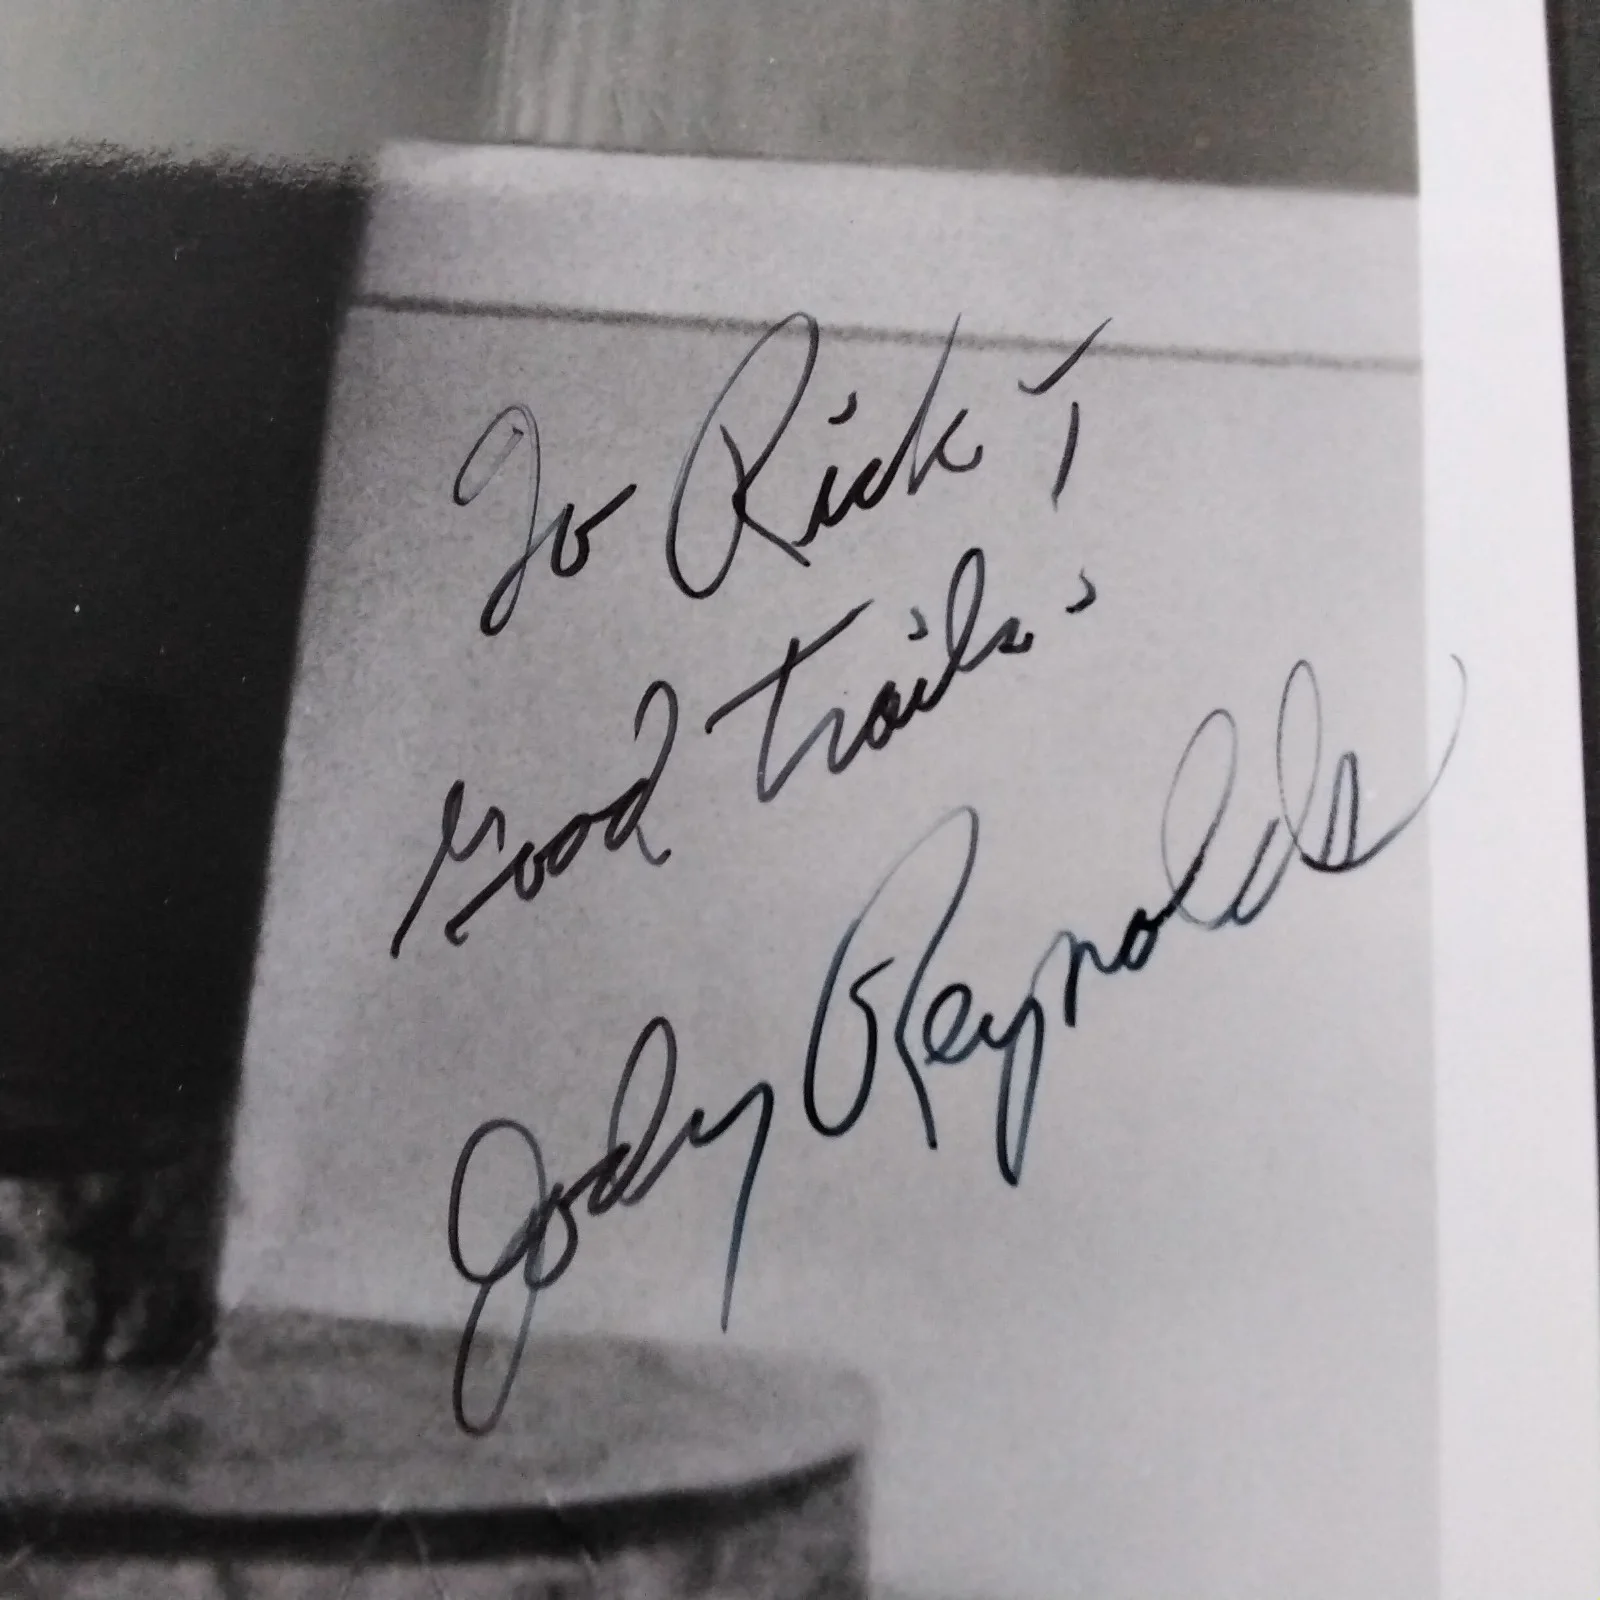 To Rick T
Good trails.
Jody Reynolds